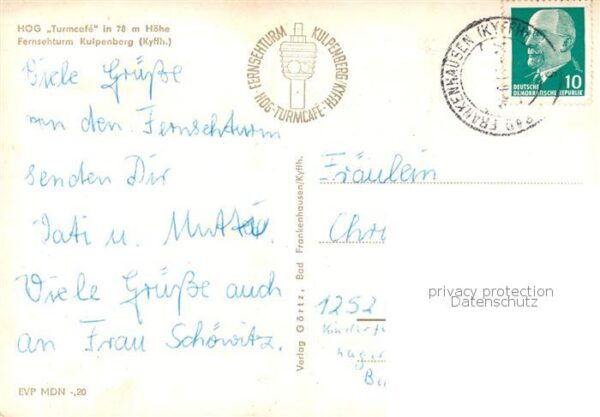 HOG „Turmcafé" in 78 m Höhe
Fernsehturm Kulpenberg (Kyffh.)
Viele Grüße
von den Fernsehturm
senden Dir
Tati u. Mutti.
Viele Grüße auch
an Frau Schöwitz.
EVP MDN -,20
FERNSEHTURM KULPENBERG KYFFH.
HOG-TURMCAFÉ
Verlag Görtz, Bad Frankenhausen/Kyffh.
BAD FRANKENHAUSEN (KYFFH)
10
DEUTSCHE
DEMOKRATISCHE REPUBLIK
Fräulein
Chr
privacy protection
Datenschutz
1252
Kinderfe
lager